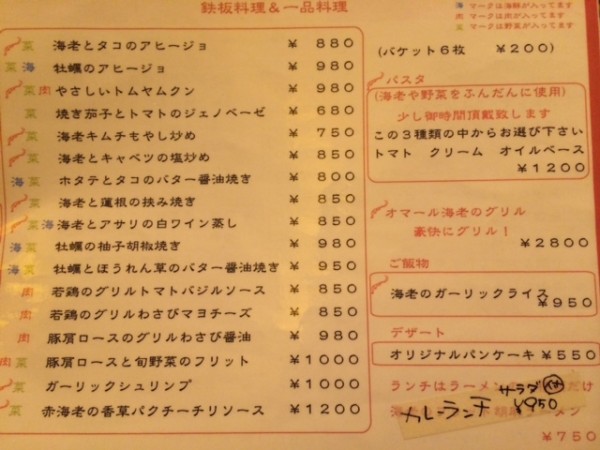 鉄板料理&一品料理
菜 海老とタコのアヒージョ ¥ 880
菜 海 牡蠣のアヒージョ ¥ 980
菜 肉 やさしいトムヤムクン ¥ 980
菜 焼き茄子とトマトのジェノベーゼ ¥ 680
海老キムチもやし炒め ¥ 750
海老とキャベツの塩炒め ¥ 850
海 菜 ホタテとタコのバター醤油焼き ¥ 800
海老と蓮根の挟み焼き ¥ 850
菜 海 海老とアサリの白ワイン蒸し ¥ 850
海 菜 牡蠣の柚子胡椒焼き ¥ 950
海 菜 牡蠣とほうれん草のバター醤油焼き ¥ 950
肉 若鶏のグリルトマトバジルソース ¥ 850
肉 若鶏のグリルわさびマヨチーズ ¥ 850
肉 豚肩ロースのグリルわさび醤油 ¥ 980
肉 菜 豚肩ロースと旬野菜のフリット ¥1000
菜 ガーリックシュリンプ ¥1000
菜 赤海老の香草パクチーチリソース ¥1200
海 マークは海鮮が入ってます
肉 マークは肉が入ってます
菜 マークは野菜が入ってます
(バケット6枚 ¥200)
パスタ
(海老や野菜をふんだんに使用)
少し御時間頂戴致します
この3種類の中からお選び下さい
トマト クリーム オイルベース
¥1200
オマール海老のグリル
豪快にグリル!
¥2800
ご飯物
海老のガーリックライス
¥950
デザート
オリジナルパンケーキ ¥550
ランチはラーメン だけ
カレーランチ サラダ付 ¥950
海 ラーメン
¥750